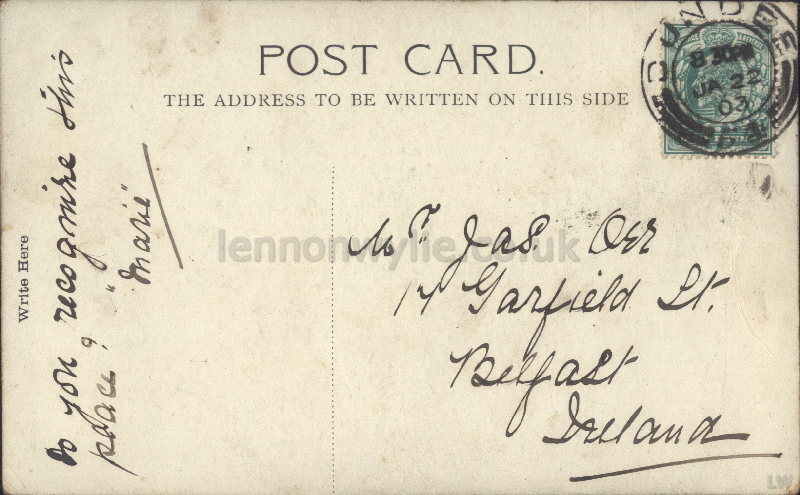 POST CARD.
THE ADDRESS TO BE WRITTEN ON THIS SIDE
DUNDEE
8 30PM
JA 22
03
Write Here
Do you recognise this
place?
"Marie"
Mr. Jas. Orr
14 Garfield St.
Belfast
Ireland
lennonwylie.co.uk
LW